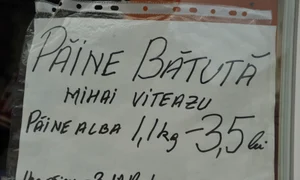 PĂINE BĂTUTĂ
MIHAI VITEAZU
PĂINE ALBA 1,1 kg - 3,5 lei